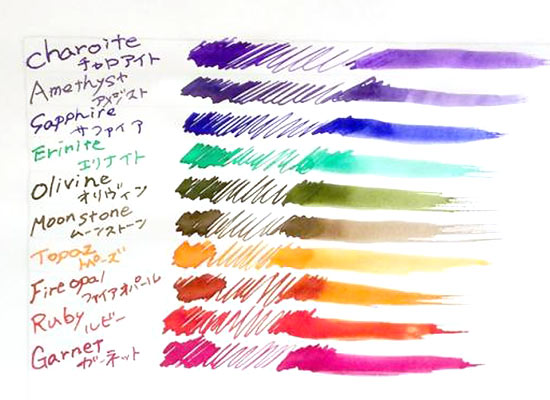 charoite
チャロアイト
Amethyst
アメジスト
Sapphire
サファイア
Erinite
エリナイト
Olivine
オリヴィン
Moonstone
ムーンストーン
Topaz
トパーズ
Fire opal
ファイアオパール
Ruby
ルビー
Garnet
ガーネット